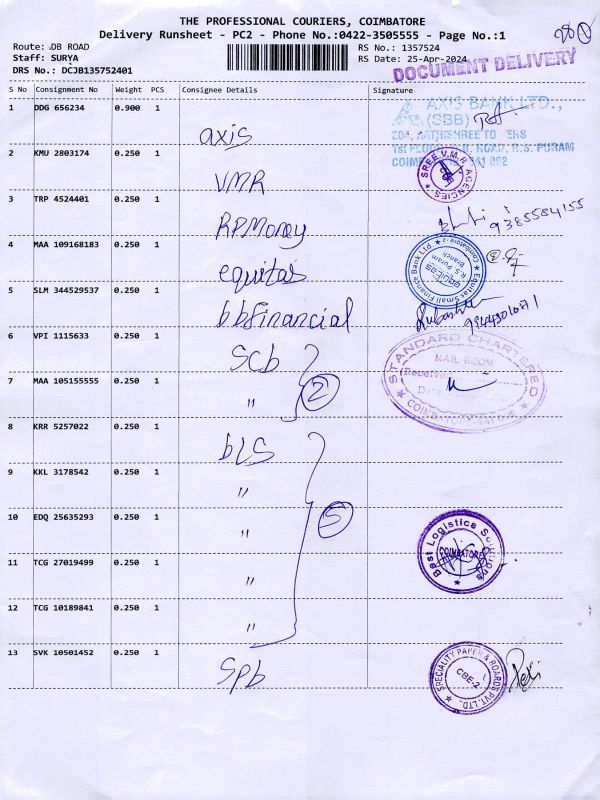 THE PROFESSIONAL COURIERS, COIMBATORE
Delivery Runsheet - PC2 - Phone No.:0422-3505555 - Page No.:1
Route: DB ROAD
Staff: SURYA
DRS No.: DCJB135752401
RS No.: 1357524
RS Date: 25-Apr-2024
DOCUMENT DELIVERY
S No Consignment No Weight PCS Consignee Details Signature
1 DDG 656234 0.900 1 axis
AXIS BANK LTD.,
(SBB)
204, TO ERS
1st FLOOR B. ROAD, R.S. PURAM
2 KMU 2803174 0.250 1 VMR
SREE V.M.R AGENCIES
3 TRP 4524401 0.250 1 RPMoney
9385584155
4 MAA 109168183 0.250 1 equitas
Equitas Small Finance Bank Ltd. Coimbatore - 2
equitas
R.S Puram
Branch
5 SLM 344529537 0.250 1 bbfinancial
6 VPI 1115633 0.250 1 scb
STANDARD CHARTERED
MAIL ROOM
7 MAA 105155555 0.250 1 " 2
8 KRR 5257022 0.250 1 bLS
9 KKL 3178542 0.250 1 "
10 EDQ 25635293 0.250 1 " 5
Best Logistics Solutions
COIMBATORE
11 TCG 27019499 0.250 1 "
12 TCG 10189841 0.250 1 "
13 SVK 10501452 0.250 1 Spb
SPECIALITY PAPER & BOARDS PVT. LTD.
CBE-2